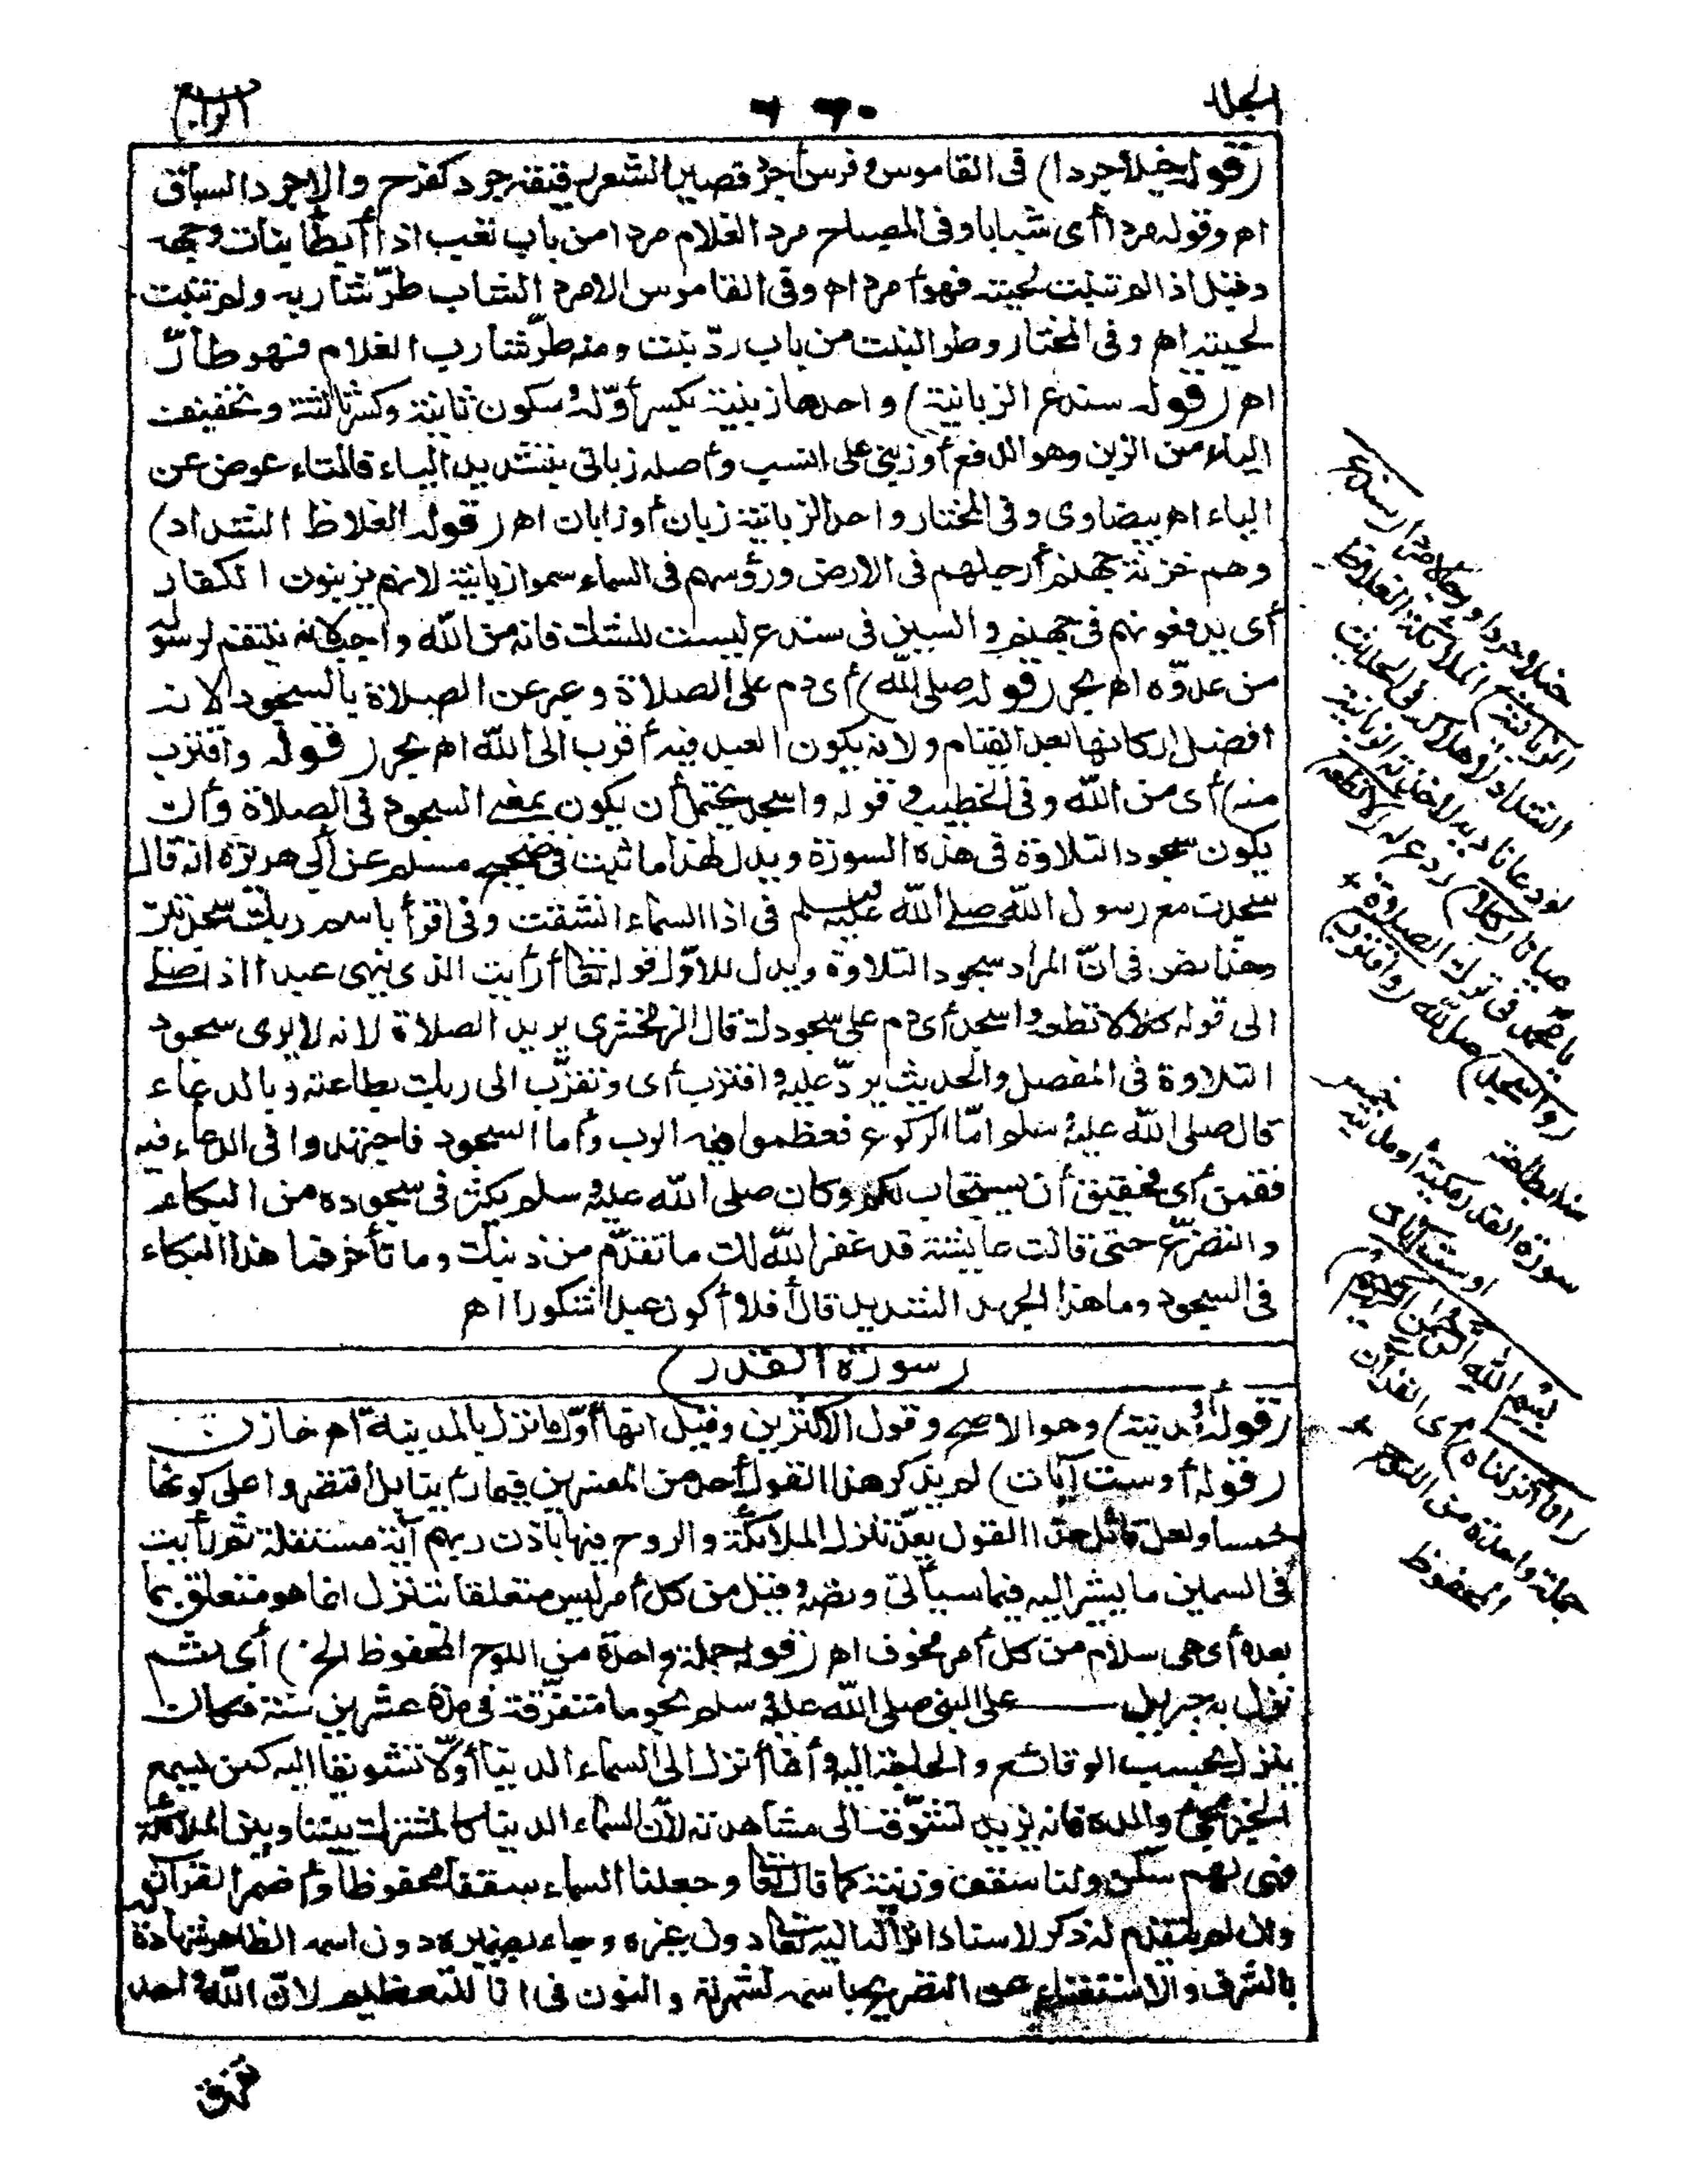 الجلد
٦٦٠
الرابع
(قوله خيلا جردا) فى القاموس وفرس أجرد قصير الشعر رقيقه جرد كفرح والاجرد السباق
اه وقوله مردا أى شبابا وفى المصباح مرد الغلام مردا من باب تعب اذا أبطأ نبات وجهه
وقيل اذا لم تنبت لحيته فهو أمرد اه وفى القاموس الامرد الشاب طرّ شاربه ولم تنبت
لحيته اه وفى المختار وطر النبت من باب ردّ نبت ومنه طرّ شارب الغلام فهو طارّ
اه (قوله سندع الزبانية) واحدها زبنية بكسر أوّله وسكون ثانيه وكسر ثالثه وتخفيف
الياء من الزبن وهو الدفع أو زبنى على النسب وأصله زبانى بتشديد الياء فالتاء عوض عن
الياء اه بيضاوى وفى المختار واحد الزبانية زبان أو زابن اه (قوله الغلاظ الشداد)
وهم خزنة جهنم أرجلهم فى الارض ورؤسهم فى السماء سموا زبانية لانهم يزبنون الكفار
أى يدفعونهم فى جهنم والسين فى سندع ليست للشك فانه من الله واجب لانه ينتقم لرسوله
من عدوّه اه بحر (قوله صل لله) أى دم على الصلاة وعبر عن الصلاة بالسجود لانه
افضل اركانها بعد القيام ولانه يكون العبد فيه أقرب الى الله اه بحر (قوله واقترب
منه) أى من الله وفى الخطيب وقوله واسجد يحتمل أن يكون بمعنى السجود فى الصلاة وأن
يكون سجود التلاوة فى هذه السورة ويدل لهذا ما ثبت فى صحيح مسلم عن أبى هريرة انه قال
سجدت مع رسول الله صلى الله عليه وسلم فى اذا السماء انشقت وفى اقرأ باسم ربك سجدتين
وهذا نص فى انّ المراد سجود التلاوة ويدل للاوّل قوله تعالى أرأيت الذى ينهى عبدا اذا صلى
الى قوله كلا لا تطعه واسجد أى دم على سجودك قال الزمخشرى يريد الصلاة لانه لا يرى سجود
التلاوة فى المفصل والحديث يردّ عليه واقترب أى وتقرّب الى ربك بطاعته وبالدعاء
قال صلى الله عليه وسلم امّا الركوع فعظموا فيه الرب وأما السجود فاجتهدوا فى الدعاء فيه
فقمن أى فحقيق أن يستجاب لكم وكان صلى الله عليه وسلم يكثر فى سجوده من البكاء
والتضرّع حتى قالت عايشة قد غفر الله لك ما تقدّم من ذنبك وما تأخر فما هذا البكاء
فى السجود وما هذا الجهد الشديد قال أفلا أكون عبدا شكورا اه
(سورة القدر)
(قوله أو مدنية) وهو الاصح وقول الاكثرين وقيل انها أوّل ما نزل بالمدينة اه خازن
(قوله أو ست آيات) لم يذكر هذا القول أحد من المفسرين فيما رأينا بل اقتصروا على كونها
خمسا ولعل قائل هذا القول يعدّ تنزل الملائكة والروح فيها باذن ربهم آية مستقلة ثم رأيت
فى السمين ما يشير اليه فيما سيأتى ونصه وقيل من كل أمر ليس متعلقا بتنزل انما هو متعلق بما
بعده أى هى سلام من كل أمر مخوف اه (قوله جملة واحدة من اللوح المحفوظ الخ) أى ثم
نزل به جبريل على النبى صلى الله عليه وسلم نجوما متفرّقة فى مدّة عشرين سنة فكان
ينزل بحسب الوقائع والحاجة اليه وانما أنزل الى السماء الدنيا أوّلا تشويقا اليه كمن يسمع
الخبر بمجئ والده فانه يزيد تشوّقه الى مشاهدته لأن السماء الدنيا كالمشترك بيننا وبين الملائكة
فهى لهم سكن ولنا سقف وزينة كما قال تعالى وجعلنا السماء سقفا محفوظا وأضمر القرآن
وان لم يتقدّم له ذكر لاسناد انزاله اليه تعالى دون غيره وجاء بضميره دون اسمه الظاهر شهادة له
بالشرف والاستغناء عن التصريح باسمه لشهرته والنون فى انا للتعظيم لانّ الله واحد
خيلا جردا ورجالا مردا (سندع
الزبانية) الملائكة الغلاظ
الشداد لاهلاكه فى الحديث
لو دعا ناديه لاخذته الزبانية
عيانا (كلا) ردع له (لا تطعه)
يا محمد فى ترك الصلاة
(واسجد) صل لله (واقترب)
منه بطاعته
سورة القدر مكية أو مدنية خمس
او ست آيات
بسم الله الرحمن الرحيم
(انا أنزلناه) أى القرآن
جملة واحدة من اللوح
المحفوظ